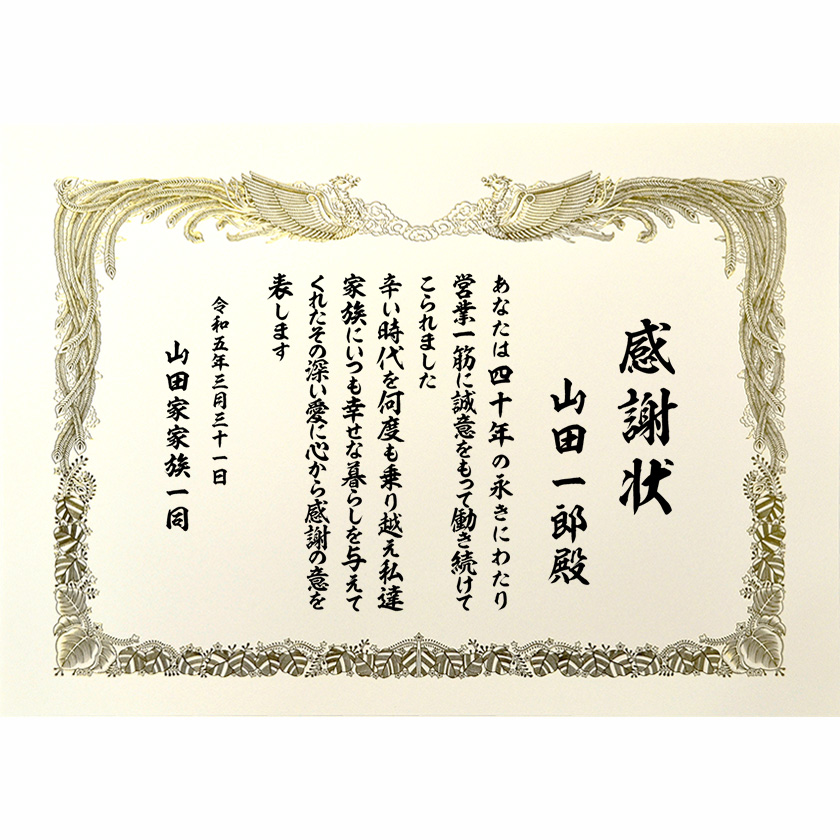 感謝状
山田一郎殿
あなたは四十年の永きにわたり
営業一筋に誠意をもって働き続けて
こられました
辛い時代を何度も乗り越え私達
家族にいつも幸せな暮らしを与えて
くれたその深い愛に心から感謝の意を
表します
令和五年三月三十一日
山田家家族一同